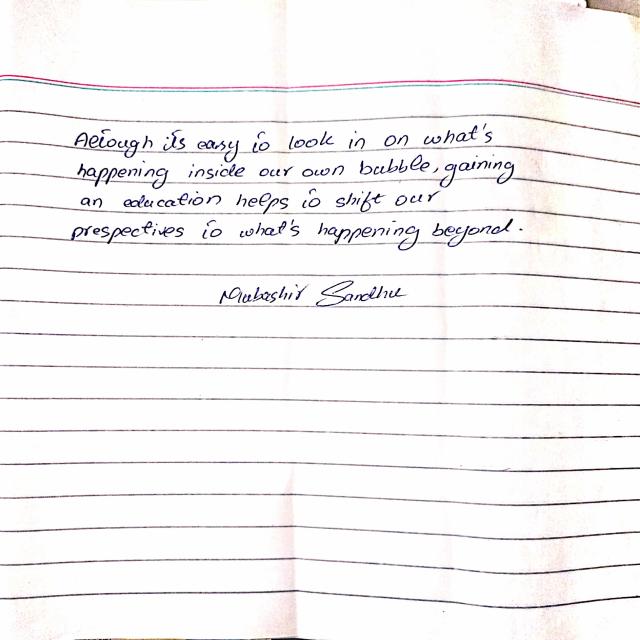 Aelough its easy to look in on what's
happening inside our own bubble, gaining
an education helps to shift our
prespectives to what's happening beyond.
Mubashir Sandhu